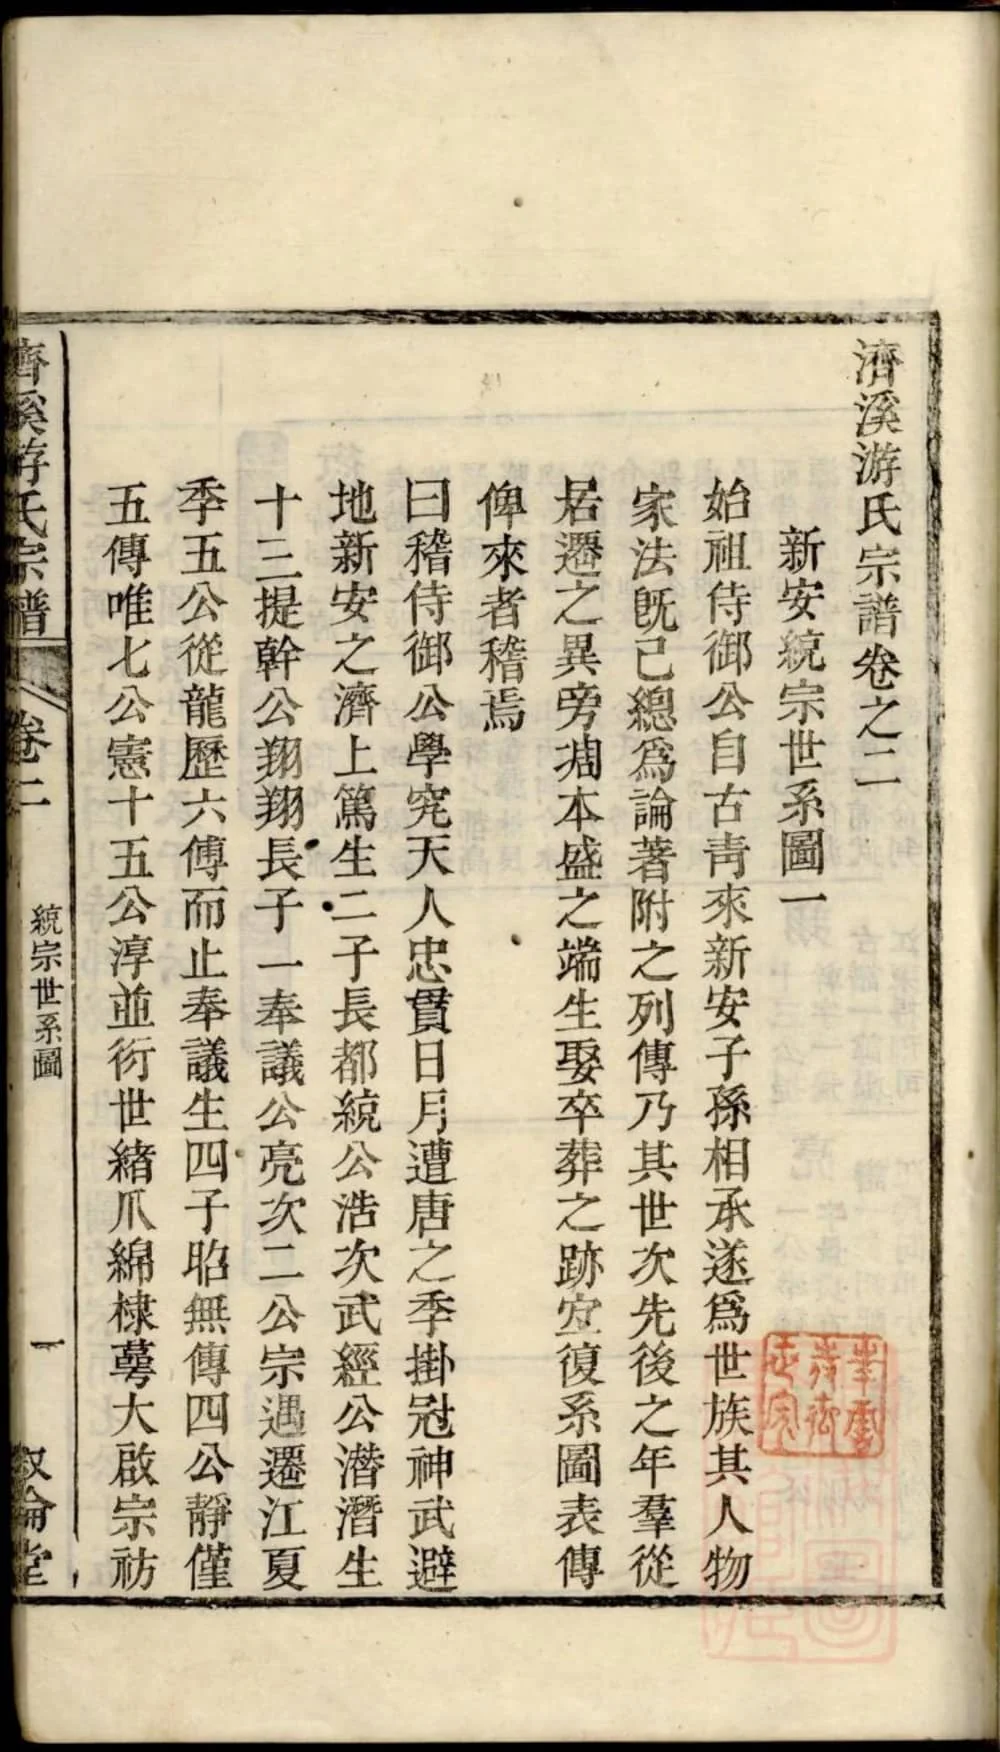 濟溪游氏宗譜卷之二
新安統宗世系圖一
始祖侍御公自古青來新安子孫相承遂爲世族其人物
家法旣已總爲論著附之列傳乃其世次先後之年羣從
居遷之異旁凋本盛之端生娶卒葬之跡宜復系圖表傳
俾來者稽焉
曰稽侍御公學究天人忠貫日月遭唐之季掛冠神武避
地新安之濟上篤生二子長都統公浩次武經公潜潛生
十三提幹公翔翔長子一奉議公亮次二公宗遇遷江夏
季五公從龍歷六傳而止奉議生四子昭無傳四公靜僅
五傳唯七公憲十五公淳並衍世緒爪綿棣萼大啟宗祊
濟溪游氏宗譜
卷二
統宗世系圖
一
叙倫堂